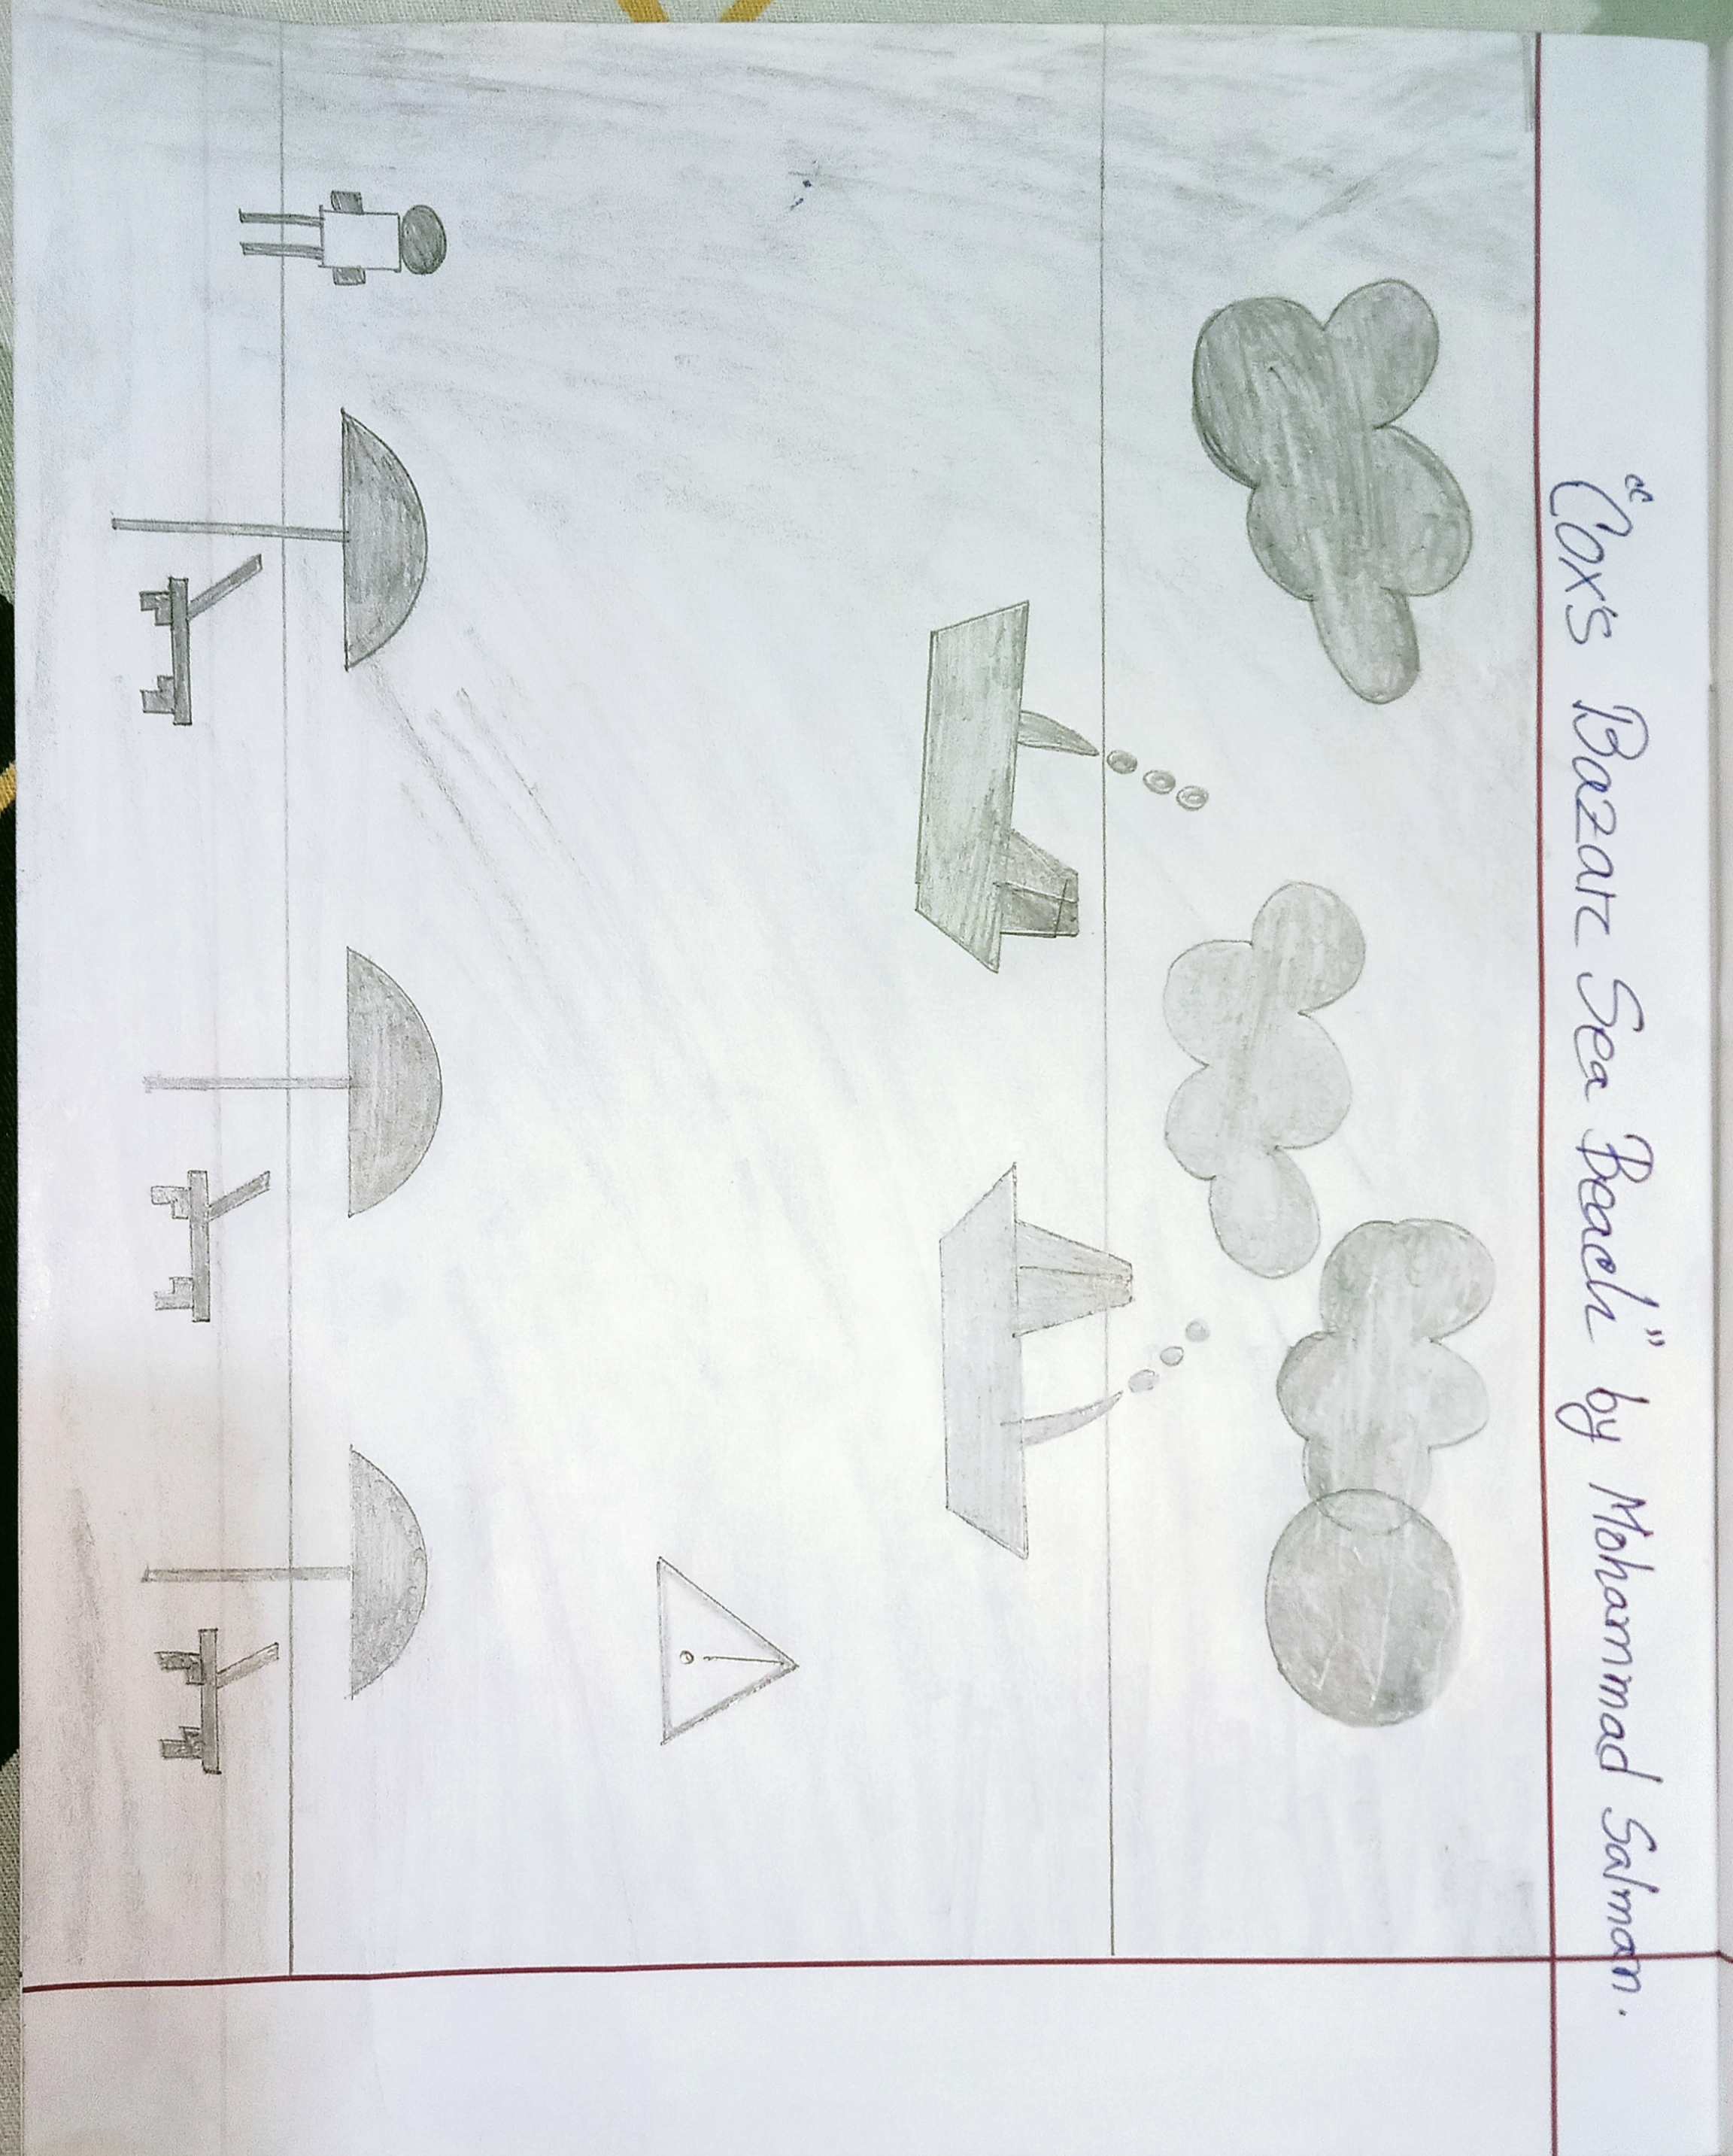 "Cox's Bazar Sea Beach" by Mohammad Salman.
!